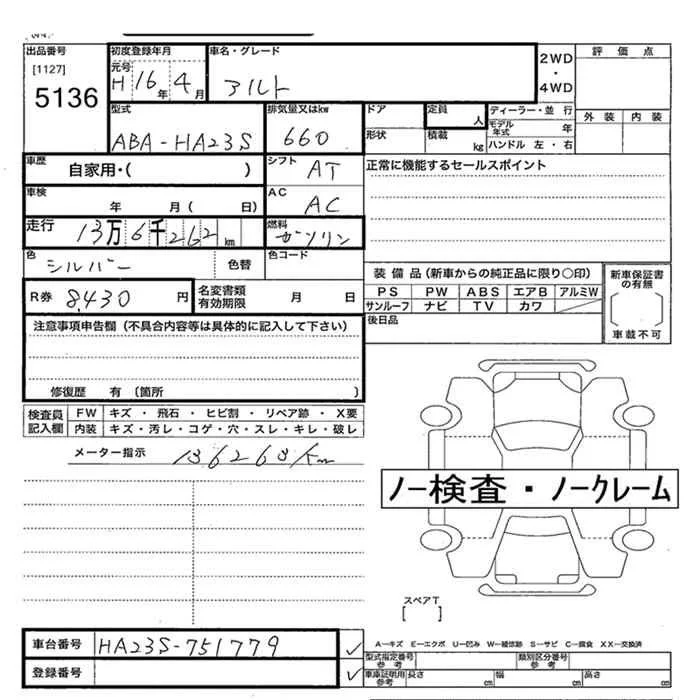 出品番号 初度登録年月 車名・グレード 2WD 評価点
[1127] 元号 ・
5136 H 16年 4月 アルト 4WD
型式 排気量又はkw ドア 定員 人 ディーラー・並行 外装 内装
ABA-HA23S 660 形状 積載 kg モデル年式 年
ハンドル 左・右
車歴 自家用・( ) シフト AT 正常に機能するセールスポイント
車検 年 月( 日) AC AC
走行 13万6千262km 燃料 ガソリン
色 シルバー 色替 色コード
装備品(新車からの純正品に限り○印) 新車保証書の有無
R券 8,430円 名変書類有効期限 月 日 PS PW ABS エアB アルミW
サンルーフ ナビ TV カワ
後日品 車載不可
注意事項申告欄(不具合内容等は具体的に記入して下さい)
修復歴 有(箇所 )
検査員記入欄 FW キズ・飛石・ヒビ割・リペア跡・X要
内装 キズ・汚レ・コゲ・穴・スレ・キレ・破レ
メーター指示 136263km
ノー検査・ノークレーム
スペアT
[ ]
車台番号 HA23S-751779 ✓
A-キズ E-エクボ U-凹み W-補修跡 S-サビ C-腐食 XX-交換済
型式指定番号 参考 類別区分番号 参考
登録番号 ✓ 車庫証明用 参考 長さ cm 幅 cm 高さ cm